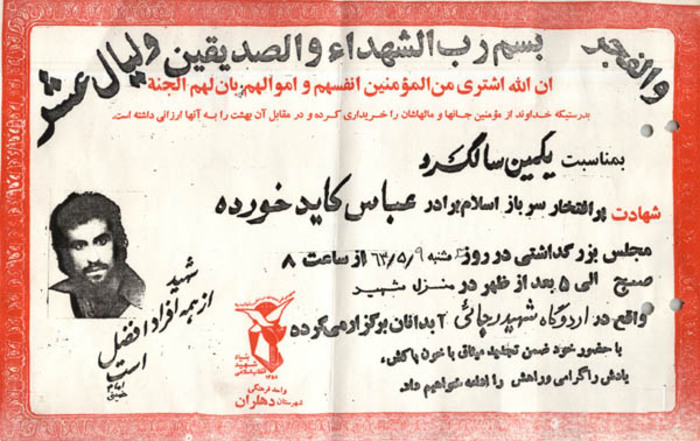 والفجر
ولیال عشر
بسم رب الشهداء والصدیقین
ان الله اشتری من المؤمنین انفسهم و اموالهم بان لهم الجنة
بدرستیکه خداوند از مؤمنین جانها و مالهاشان را خریداری کرده و در مقابل آن بهشت را به آنها ارزانی داشته است.
بمناسبت یکمین سالگرد
شهادت پرافتخار سرباز اسلام برادر عباس کاید خورده
مجلس بزرگداشتی در روز شنبه ۶۳/۵/۹ از ساعت ۸
صبح الی ۵ بعد از ظهر در منزل شهید
واقع در اردوگاه شهید رجائی آبدانان برگزار می‌گرده
با حضور خود ضمن تجدید میثاق با خون پاکش،
یادش را گرامی و راهش را ادامه خواهیم داد.
شهید
از همه افراد افضل
است
امام خمینی
بنیاد
شهید
انقلاب اسلامی
۱۳۵۸
واحد فرهنگی
شهرستان دهلران